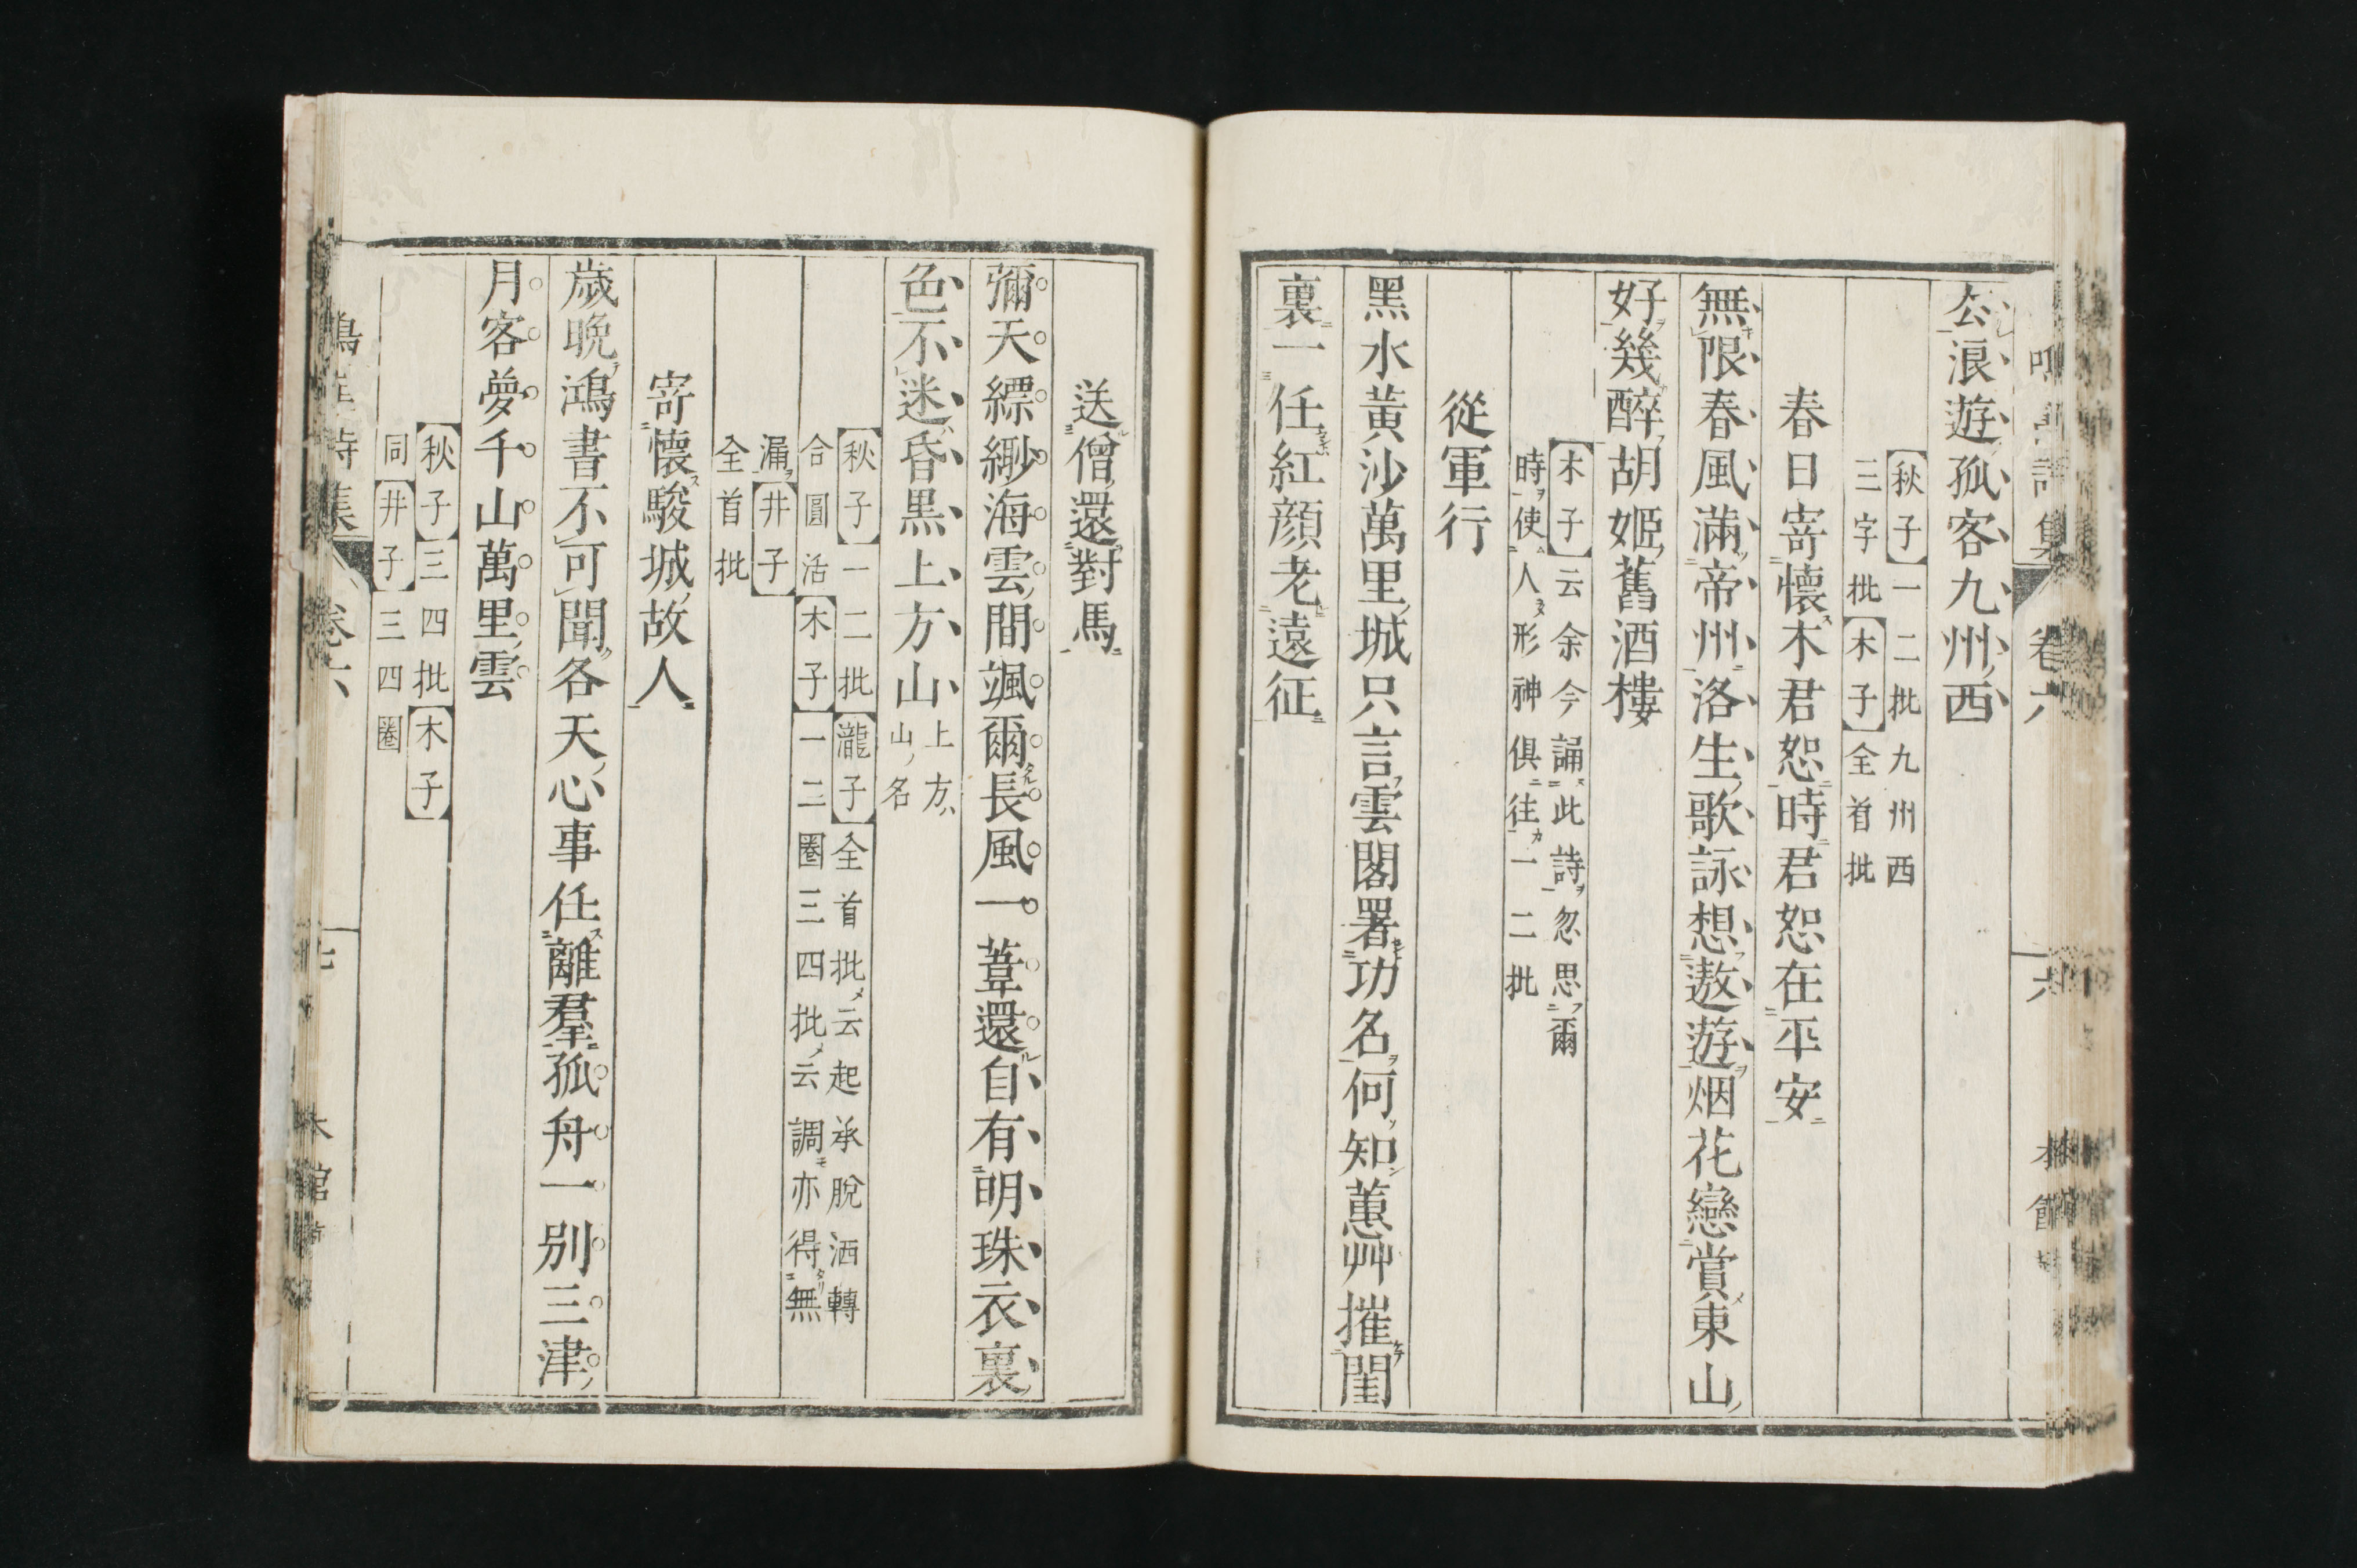 公浪遊孤客九州西
【秋子】一二批九州西
三字批【木子】全首批
春日寄懷木君恕時君恕在平安
無限春風滿帝州洛生歌詠想遨遊烟花戀賞東山
好幾醉胡姬舊酒樓
【木子】云余今誦此詩忽思爾
時使人形神俱往一二批
從軍行
黑水黃沙萬里城只言雲閣署功名何知蕙艸摧閨
裏一任紅顔老遠征
送僧還對馬
彌天縹緲海雲間颯爾長風一葦還自有明珠衣裏
色不迷昏黒上方山
上方
山名
【秋子】一二批【瀧子】全首批云起承脫洒轉
合圓活【木子】一二圈三四批云調亦得無
漏【井子】
全首批
寄懷駿城故人
歲晩鴻書不可聞各天心事任離羣孤舟一別三津
月客夢千山萬里雲
【秋子】三四批【木子】
同【井子】三四圈
集 卷六